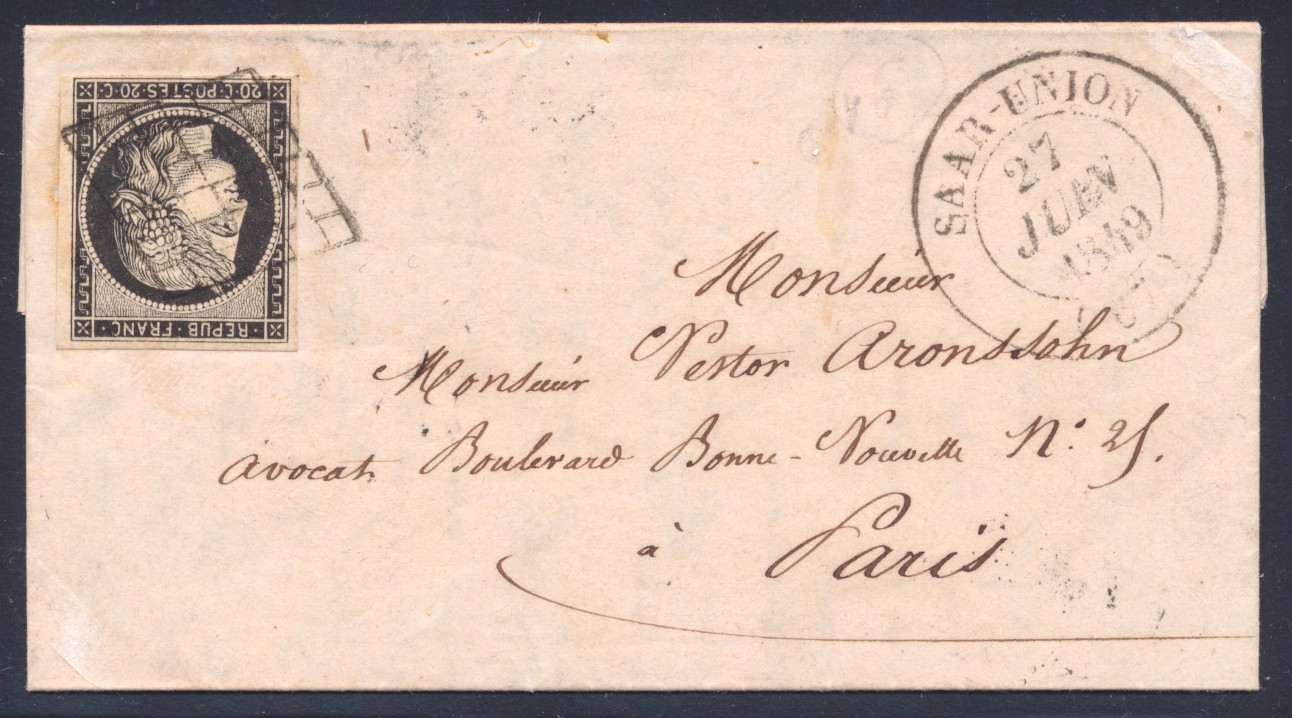 20·C·POSTES·20·C
·REPUB·FRANC·
SAAR-UNION
27
JUIN
1849
(67)
Monsieur
Monsieur Nestor Aronssohn
avocat Boulevard Bonne-Nouvelle N° 25.
à Paris